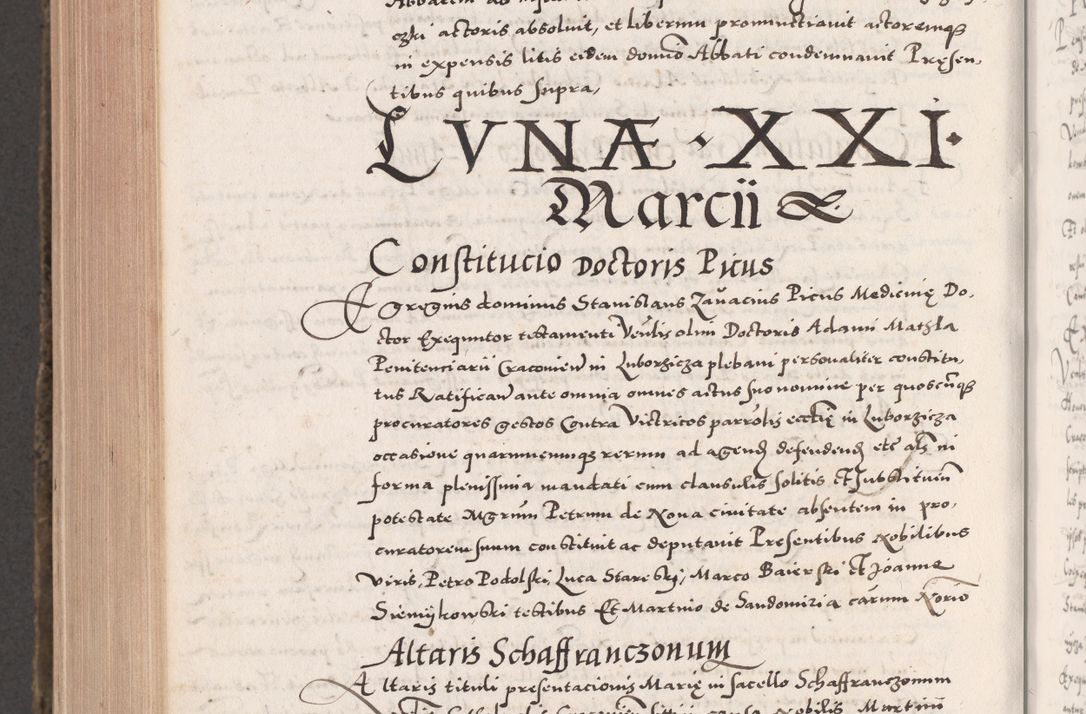 czki actoris absoluit, et liberum pronunctiauit actoremqȝ
in expensis litis eidem domino Abbati condemnauit Pręsen,
tibus quibus supra,
LVNÆ · XXI ·
Marcii &
Constitucio Doctoris Picus
Egregius dominus Stanislaus Zauacius Picus Medicinę Do,
ctor Exequutor testamenti Venlis olim Doctoris Adami Matzla
Penitenciarii Cracovien in Luborzicza plebani personaliter constitu,
tus Ratifican ante omnia omnes actus suo nomine per quoscunqȝ
procuratores gestos Contra Victricos parrolis ecclię in Luborzicza
occasione quarumcumqȝ rerum ad agend defendend etc als in
forma plenissima mandati cum clausulis solitis et substituin
potestate Mgrum Petrum de Noua ciuitate absentem in pro,
curatorem suum constituit ac deputauit Presentibus Nobilibus
viris, Petro Podolski, Luca Starcski, Marco Baierski et Joanne
Siemijkowski testibus Et Martino de Sandomiria carum Norio
Altaris Schaffranczonum
Altaris tituli presentacionis Marię in sacello Schaffranczonum
Nobilis Martini